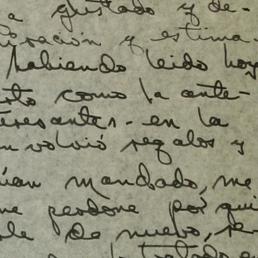 a gustado y de-
oración y estima-
habiendo leido hoy
rto como la ante-
teresantes - en la
n volvió regalos y
úan mandado, me
me perdone por qui
le de nuevo, ser